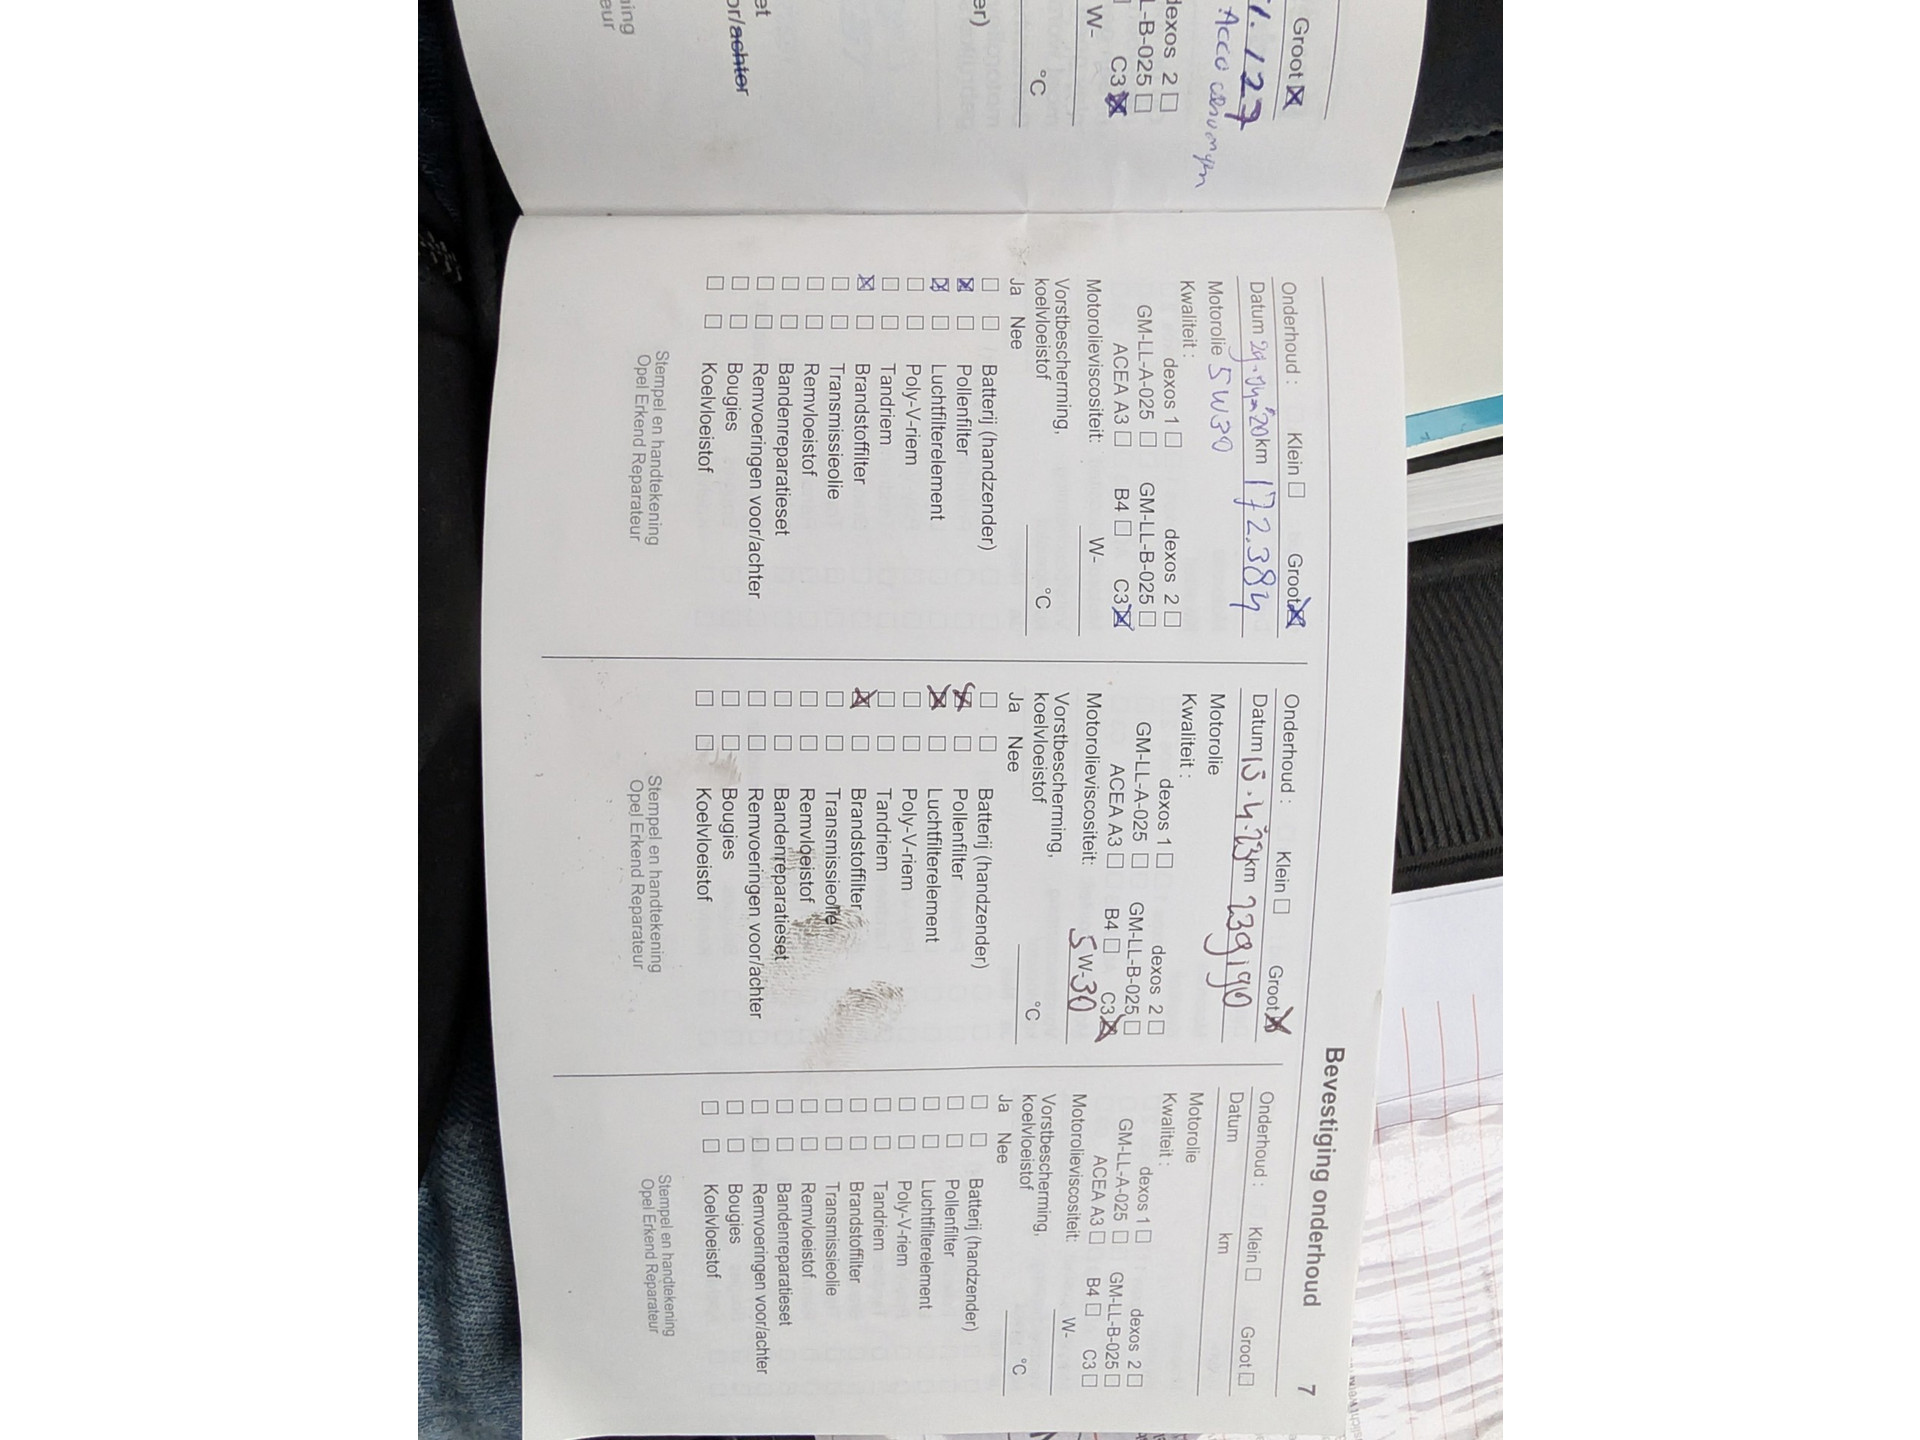 Groot
.127
Acco vervangen
dexos 2
L-B-025
C3
W-
°C
er)
et
or/achter
ning
eur
Bevestiging onderhoud 7
Onderhoud : Klein Groot
Datum km 172.384
Motorolie 5W30
Kwaliteit :
dexos 1 dexos 2
GM-LL-A-025 GM-LL-B-025
ACEA A3 B4 C3
Motorolieviscositeit: W-
Vorstbescherming,
koelvloeistof °C
Ja Nee
Batterij (handzender)
Pollenfilter
Luchtfilterelement
Poly-V-riem
Tandriem
Brandstoffilter
Transmissieolie
Remvloeistof
Bandenreparatieset
Remvoeringen voor/achter
Bougies
Koelvloeistof
Stempel en handtekening
Opel Erkend Reparateur
Onderhoud : Klein Groot
Datum 13.4.'23 km 239190
Motorolie
Kwaliteit :
dexos 1 dexos 2
GM-LL-A-025 GM-LL-B-025
ACEA A3 B4 C3
Motorolieviscositeit: 5W-30
Vorstbescherming,
koelvloeistof °C
Ja Nee
Batterij (handzender)
Pollenfilter
Luchtfilterelement
Poly-V-riem
Tandriem
Brandstoffilter
Transmissieolie
Remvloeistof
Bandenreparatieset
Remvoeringen voor/achter
Bougies
Koelvloeistof
Stempel en handtekening
Opel Erkend Reparateur
Onderhoud : Klein Groot
Datum km
Motorolie
Kwaliteit :
dexos 1 dexos 2
GM-LL-A-025 GM-LL-B-025
ACEA A3 B4 C3
Motorolieviscositeit: W-
Vorstbescherming,
koelvloeistof °C
Ja Nee
Batterij (handzender)
Pollenfilter
Luchtfilterelement
Poly-V-riem
Tandriem
Brandstoffilter
Transmissieolie
Remvloeistof
Bandenreparatieset
Remvoeringen voor/achter
Bougies
Koelvloeistof
Stempel en handtekening
Opel Erkend Reparateur